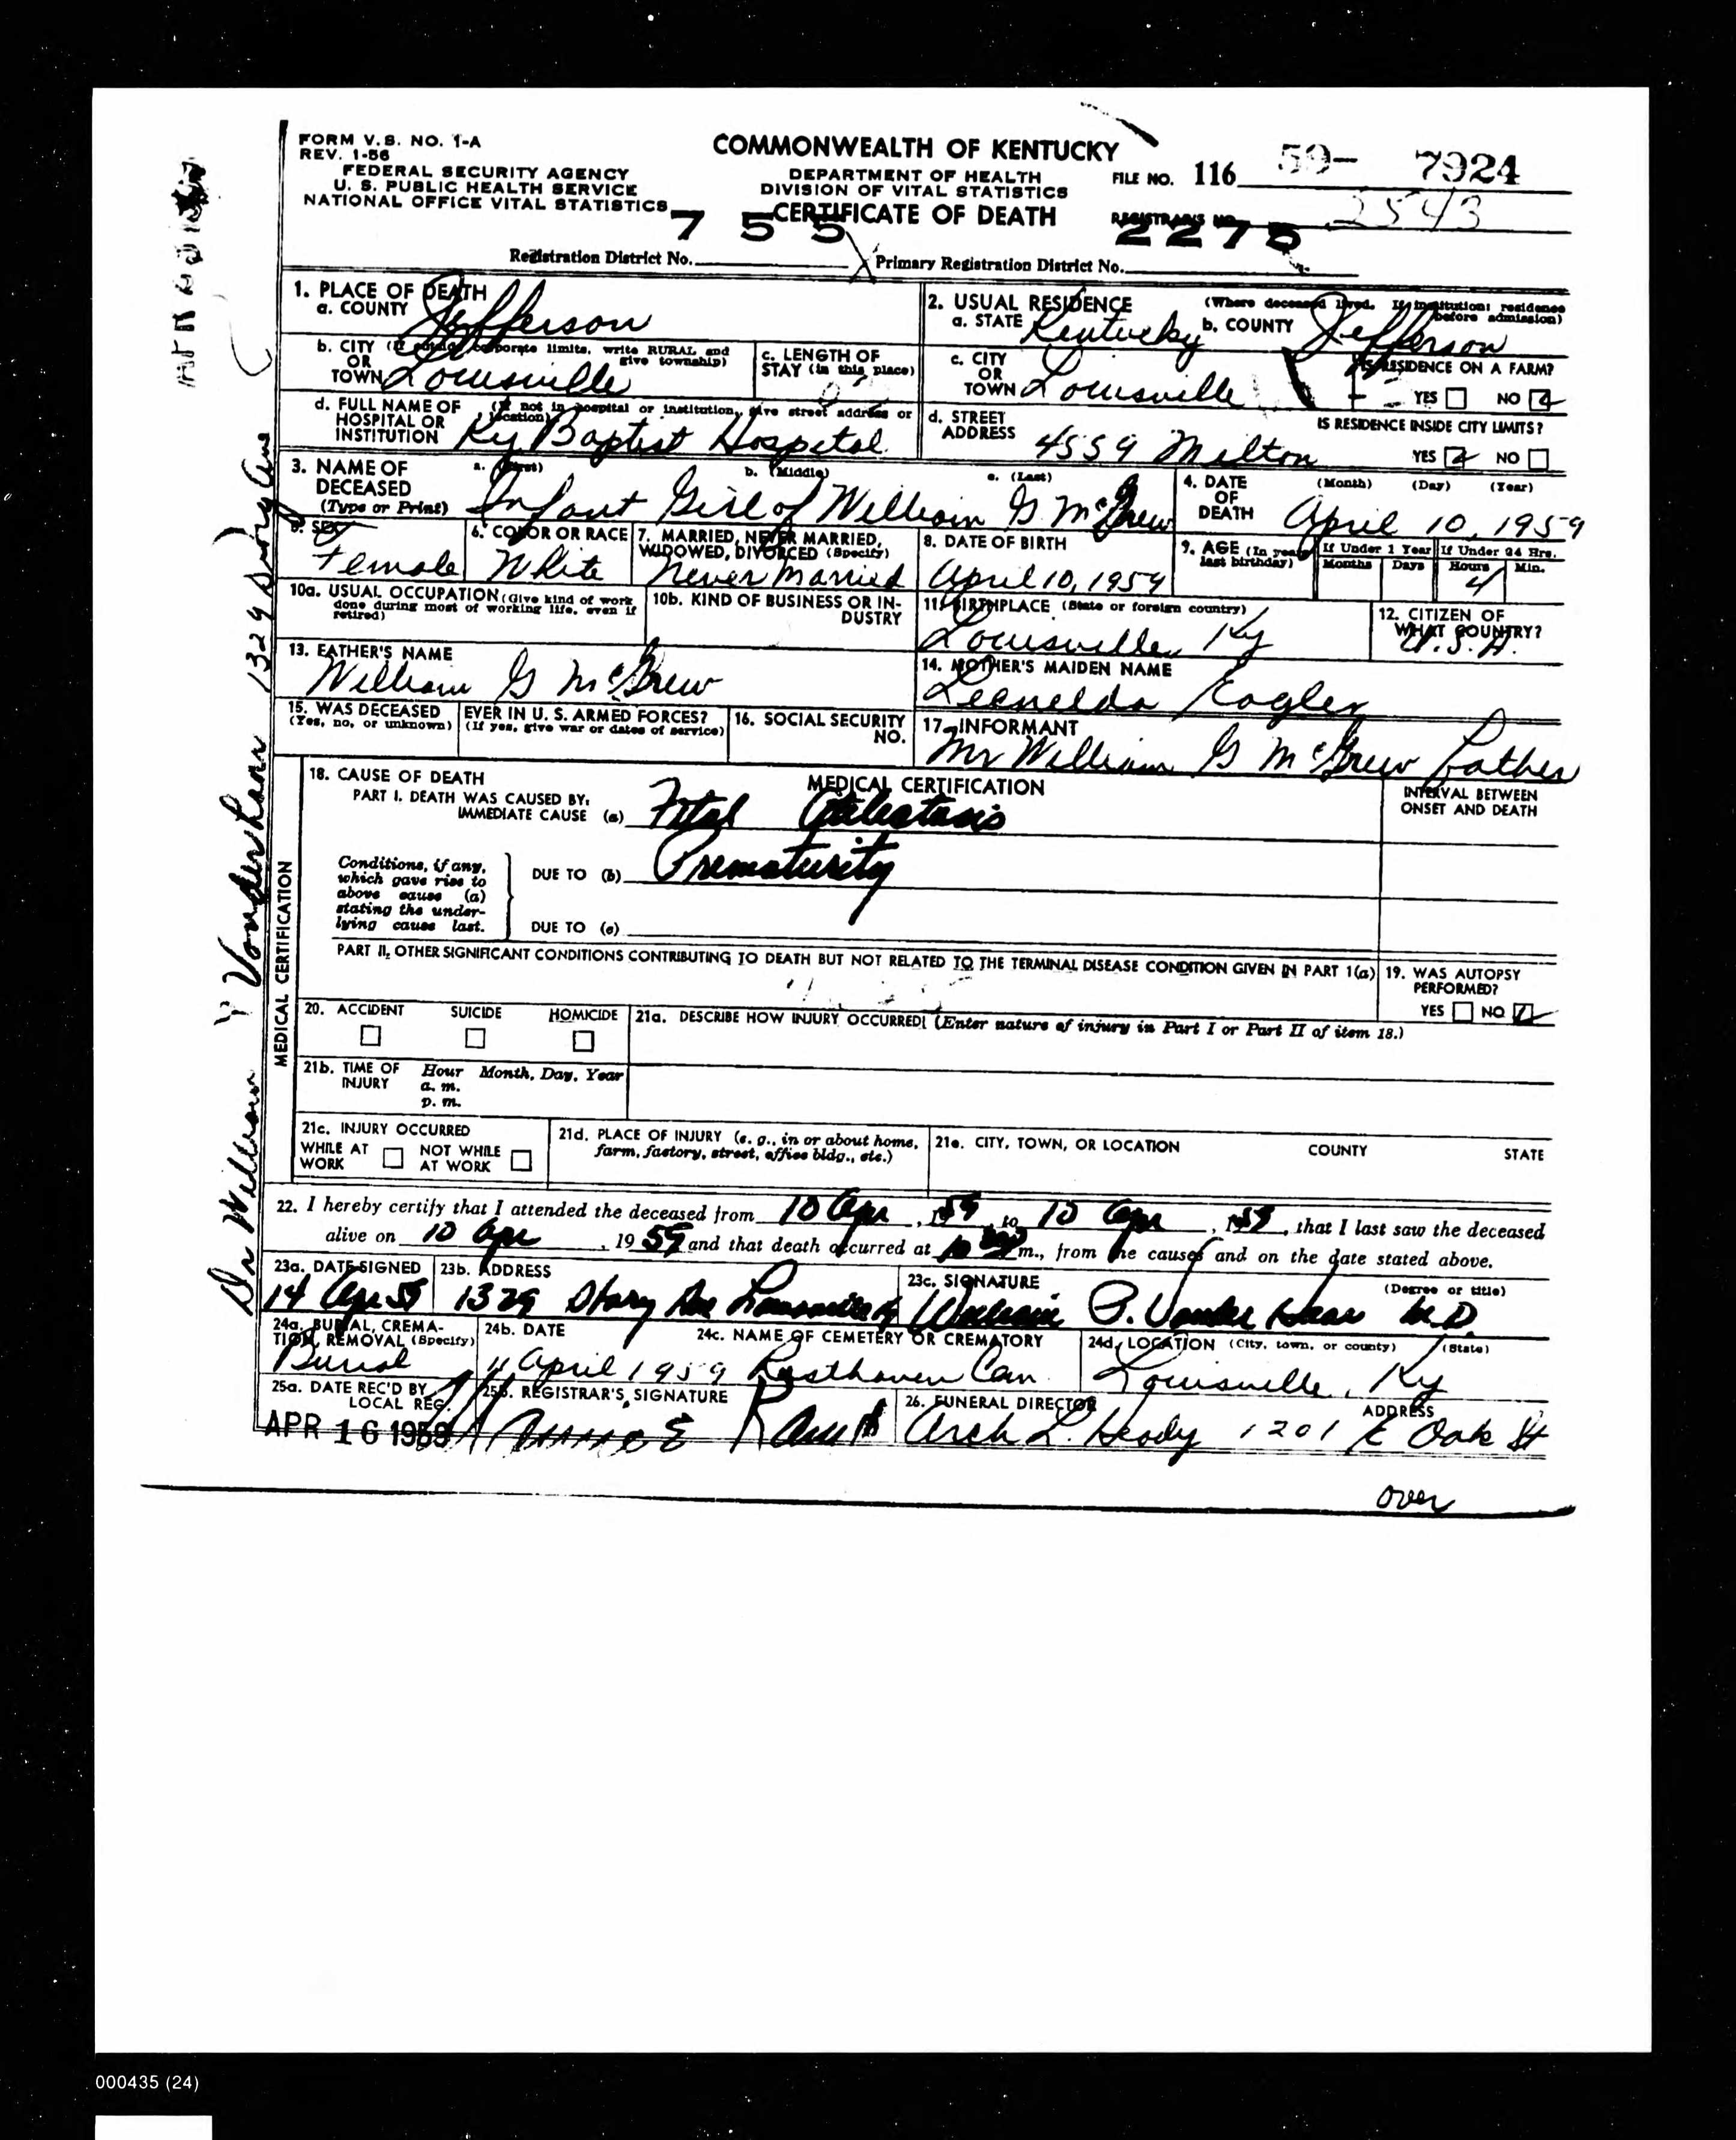 FORM V.S. NO. 1-A
REV. 1-56
FEDERAL SECURITY AGENCY
U. S. PUBLIC HEALTH SERVICE
NATIONAL OFFICE VITAL STATISTICS
COMMONWEALTH OF KENTUCKY
DEPARTMENT OF HEALTH
DIVISION OF VITAL STATISTICS
CERTIFICATE OF DEATH
FILE NO. 116 59- 7924
REGISTRAR'S NO. 2543
Registration District No. 755 Primary Registration District No. 2275
1. PLACE OF DEATH
a. COUNTY Jefferson
2. USUAL RESIDENCE (Where deceased lived. If institution: residence before admission)
a. STATE Kentucky b. COUNTY Jefferson
b. CITY (If outside corporate limits, write RURAL and give township)
OR TOWN Louisville
c. LENGTH OF STAY (in this place)
c. CITY OR TOWN Louisville
IS RESIDENCE ON A FARM?
YES NO
d. FULL NAME OF HOSPITAL OR INSTITUTION (If not in hospital or institution, give street address or location)
Ky Baptist Hospital
d. STREET ADDRESS 4559 Milton
IS RESIDENCE INSIDE CITY LIMITS?
YES NO
3. NAME OF DECEASED (Type or Print)
a. (First) b. (Middle) c. (Last)
Infant Girl of William G. McGrew
4. DATE OF DEATH (Month) (Day) (Year)
April 10, 1959
5. SEX
Female
6. COLOR OR RACE
White
7. MARRIED, NEVER MARRIED, WIDOWED, DIVORCED (Specify)
Never Married
8. DATE OF BIRTH
April 10, 1959
9. AGE (In years last birthday)
If Under 1 Year Months Days
If Under 24 Hrs. Hours Min.
4
10a. USUAL OCCUPATION (Give kind of work done during most of working life, even if retired)
10b. KIND OF BUSINESS OR INDUSTRY
11. BIRTHPLACE (State or foreign country)
Louisville, Ky
12. CITIZEN OF WHAT COUNTRY?
U.S.A.
13. FATHER'S NAME
William G McGrew
14. MOTHER'S MAIDEN NAME
15. WAS DECEASED EVER IN U. S. ARMED FORCES?
(Yes, no, or unknown) (If yes, give war or dates of service)
16. SOCIAL SECURITY NO.
17. INFORMANT
Mr William G McGrew Father
MEDICAL CERTIFICATION
18. CAUSE OF DEATH
MEDICAL CERTIFICATION
INTERVAL BETWEEN ONSET AND DEATH
PART I. DEATH WAS CAUSED BY:
IMMEDIATE CAUSE (a) Fetal Atelectasis
Conditions, if any, which gave rise to above cause (a) stating the underlying cause last.
DUE TO (b) Prematurity
DUE TO (c)
PART II. OTHER SIGNIFICANT CONDITIONS CONTRIBUTING TO DEATH BUT NOT RELATED TO THE TERMINAL DISEASE CONDITION GIVEN IN PART 1(a)
19. WAS AUTOPSY PERFORMED?
YES NO
20. ACCIDENT SUICIDE HOMICIDE
21a. DESCRIBE HOW INJURY OCCURRED! (Enter nature of injury in Part I or Part II of item 18.)
21b. TIME OF INJURY Hour Month, Day, Year
a. m.
p. m.
21c. INJURY OCCURRED
WHILE AT WORK NOT WHILE AT WORK
21d. PLACE OF INJURY (e. g., in or about home, farm, factory, street, office bldg., etc.)
21e. CITY, TOWN, OR LOCATION COUNTY STATE
22. I hereby certify that I attended the deceased from 10 Apr, 1959, to 10 Apr, 1959, that I last saw the deceased
alive on 10 Apr, 1959 and that death occurred at 10 m., from the causes and on the date stated above.
23a. DATE SIGNED
14 Apr 59
23b. ADDRESS
1329 Story Ave Louisville Ky
23c. SIGNATURE (Degree or title)
William P. VonderHaar M.D.
24a. BURIAL, CREMATION, REMOVAL (Specify)
Burial
24b. DATE
11 April 1959
24c. NAME OF CEMETERY OR CREMATORY
Resthaven Cem
24d. LOCATION (City, town, or county) (State)
Louisville, Ky
25a. DATE REC'D BY LOCAL REG.
APR 16 1959
25b. REGISTRAR'S SIGNATURE
26. FUNERAL DIRECTOR ADDRESS
Arch L. Heady 1201 E Oak St
over
Dr William P Vonderhaar 1329 Story Ave
000435 (24)